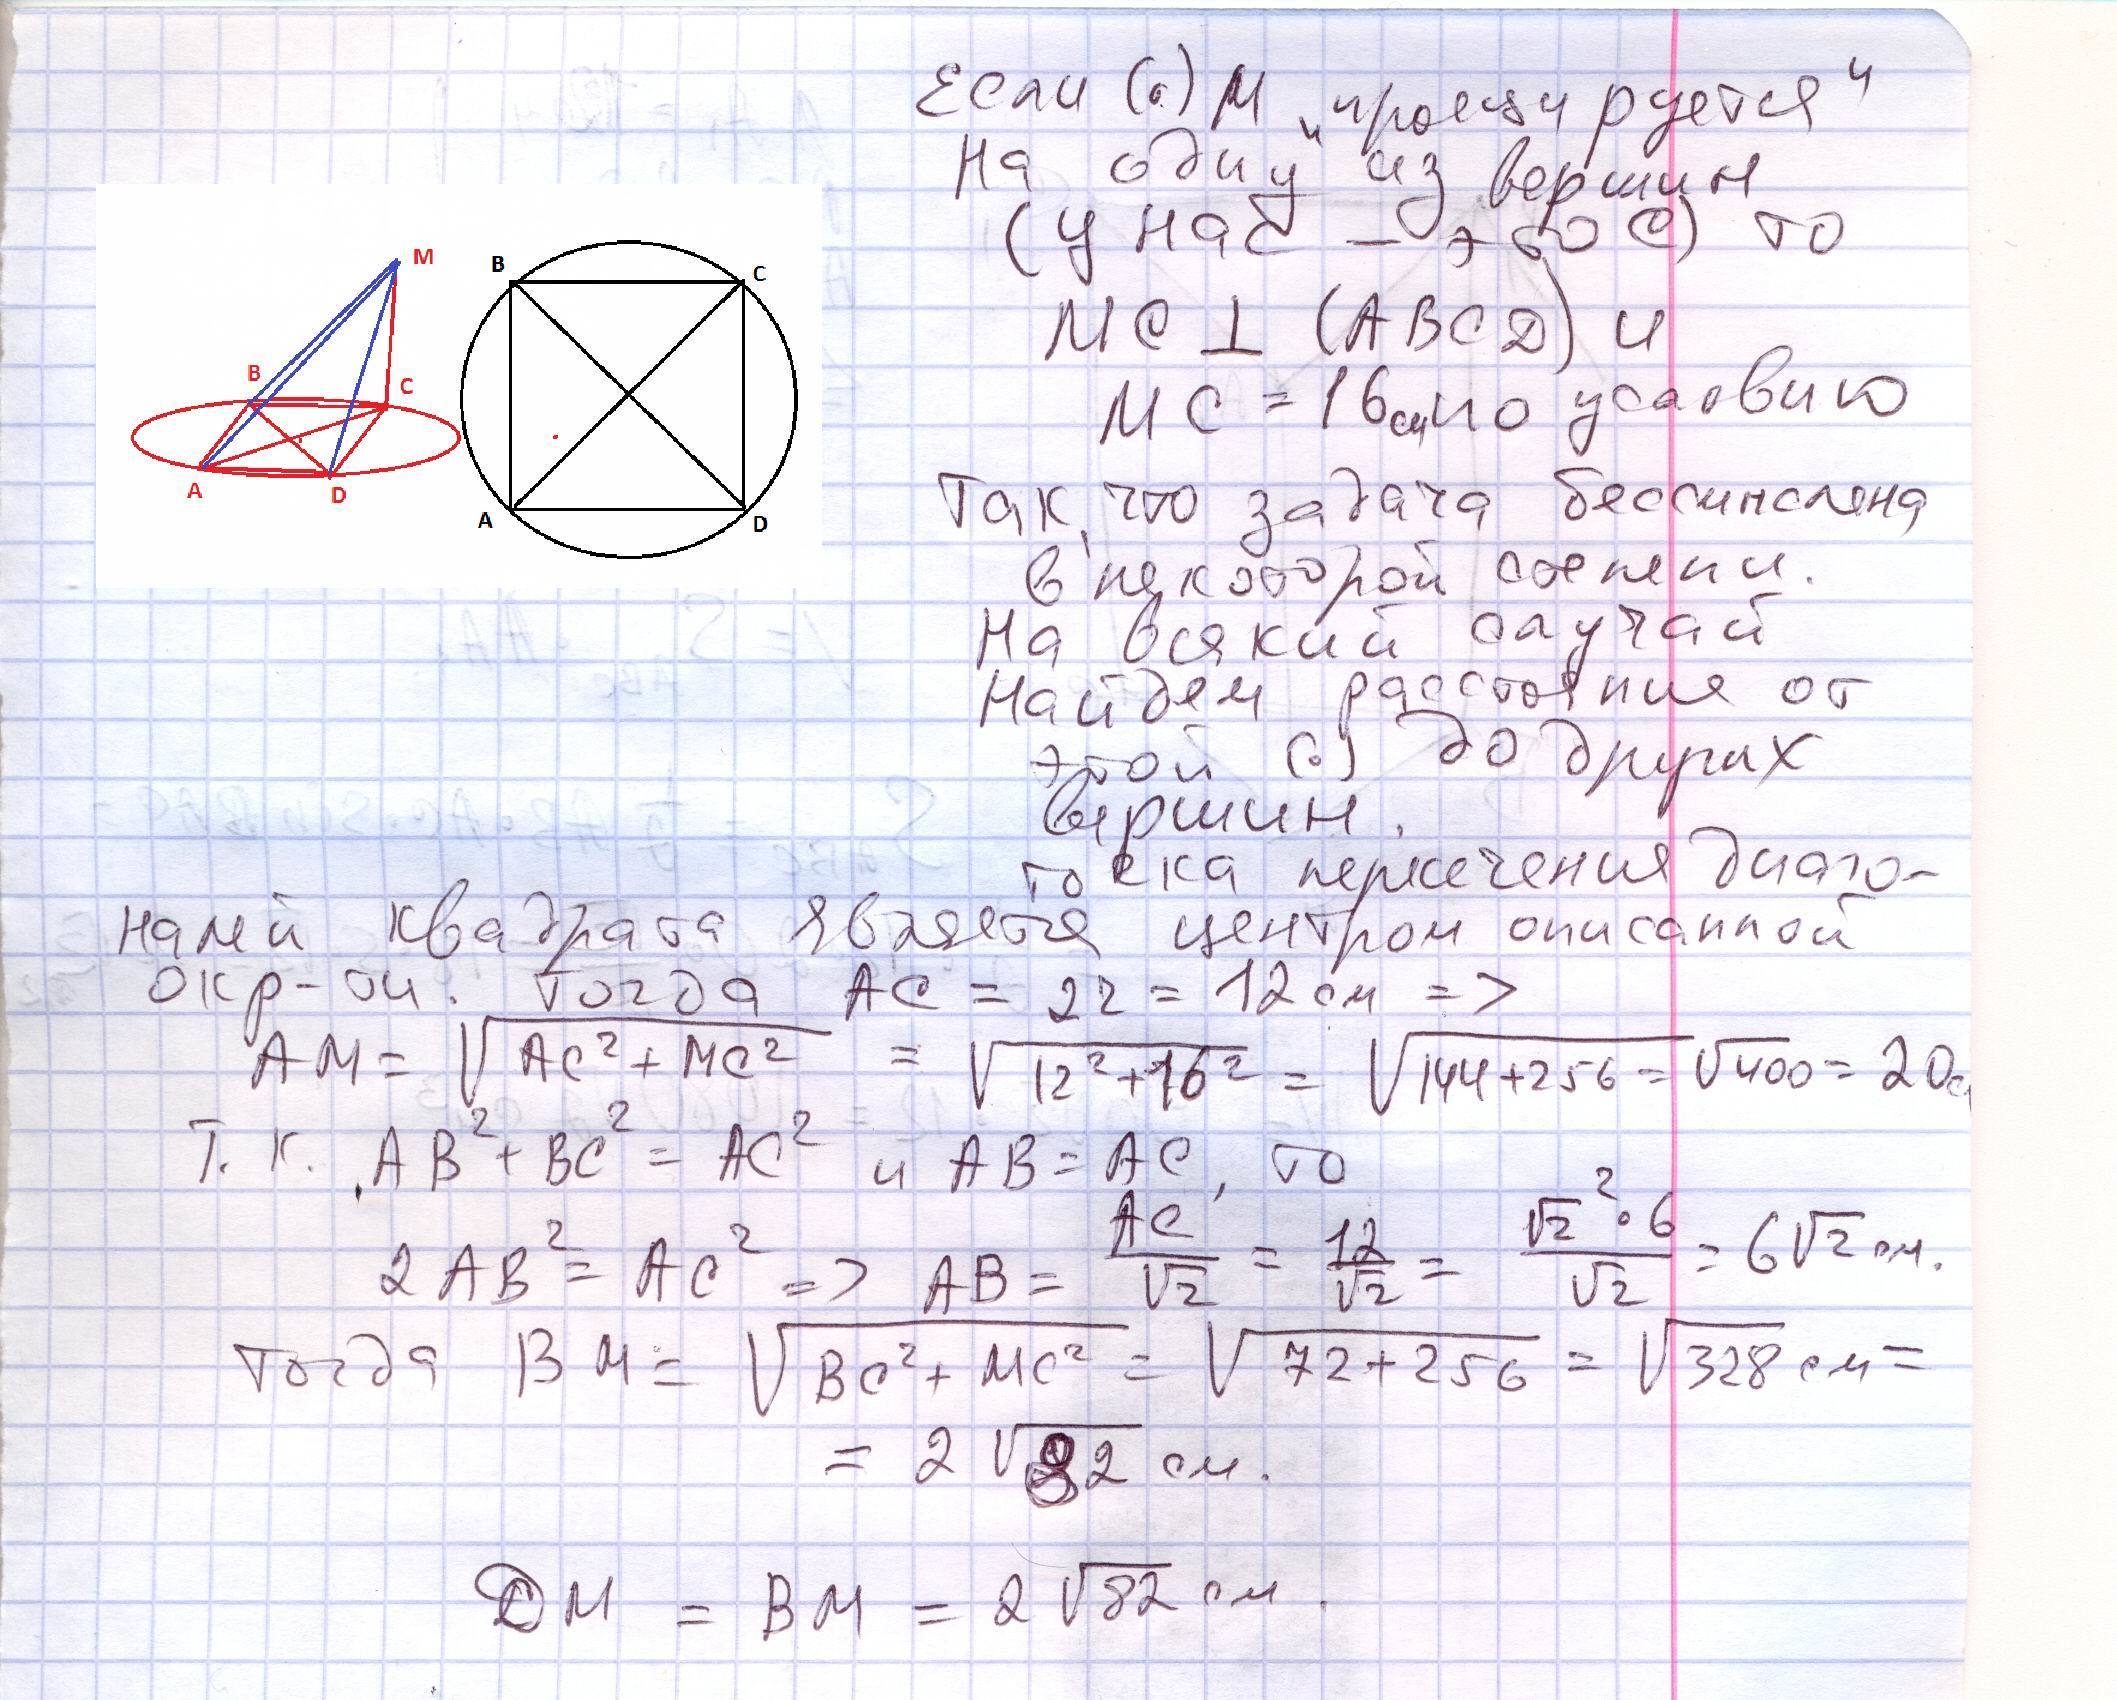 M
B
C
B
C
A
D
A
D
Если (·) М „проецируется"
на одну из вершин
(у нас – это С) то
МС ⊥ (ABCD) и
МС = 16см по условию
Так, что задача бессмыслена
в некоторой степени.
На всякий случай
найдем расстояния от
этой (·) до других
вершин.
точка пересечения диаго-
налей квадрата является центром описанной
окр-ти. Тогда АС = 2r = 12 см =>
AM = √(AC² + MC²) = √(12² + 16²) = √(144+256) = √400 = 20с
Т.к. AB² + BC² = AC² и AB = AC, то
2AB² = AC² => AB = AC/√2 = 12/√2 = √2²·6/√2 = 6√2 см.
Тогда BM = √(BC² + MC²) = √(72+256) = √328 см =
= 2√82 см.
DM = BM = 2√82 см.